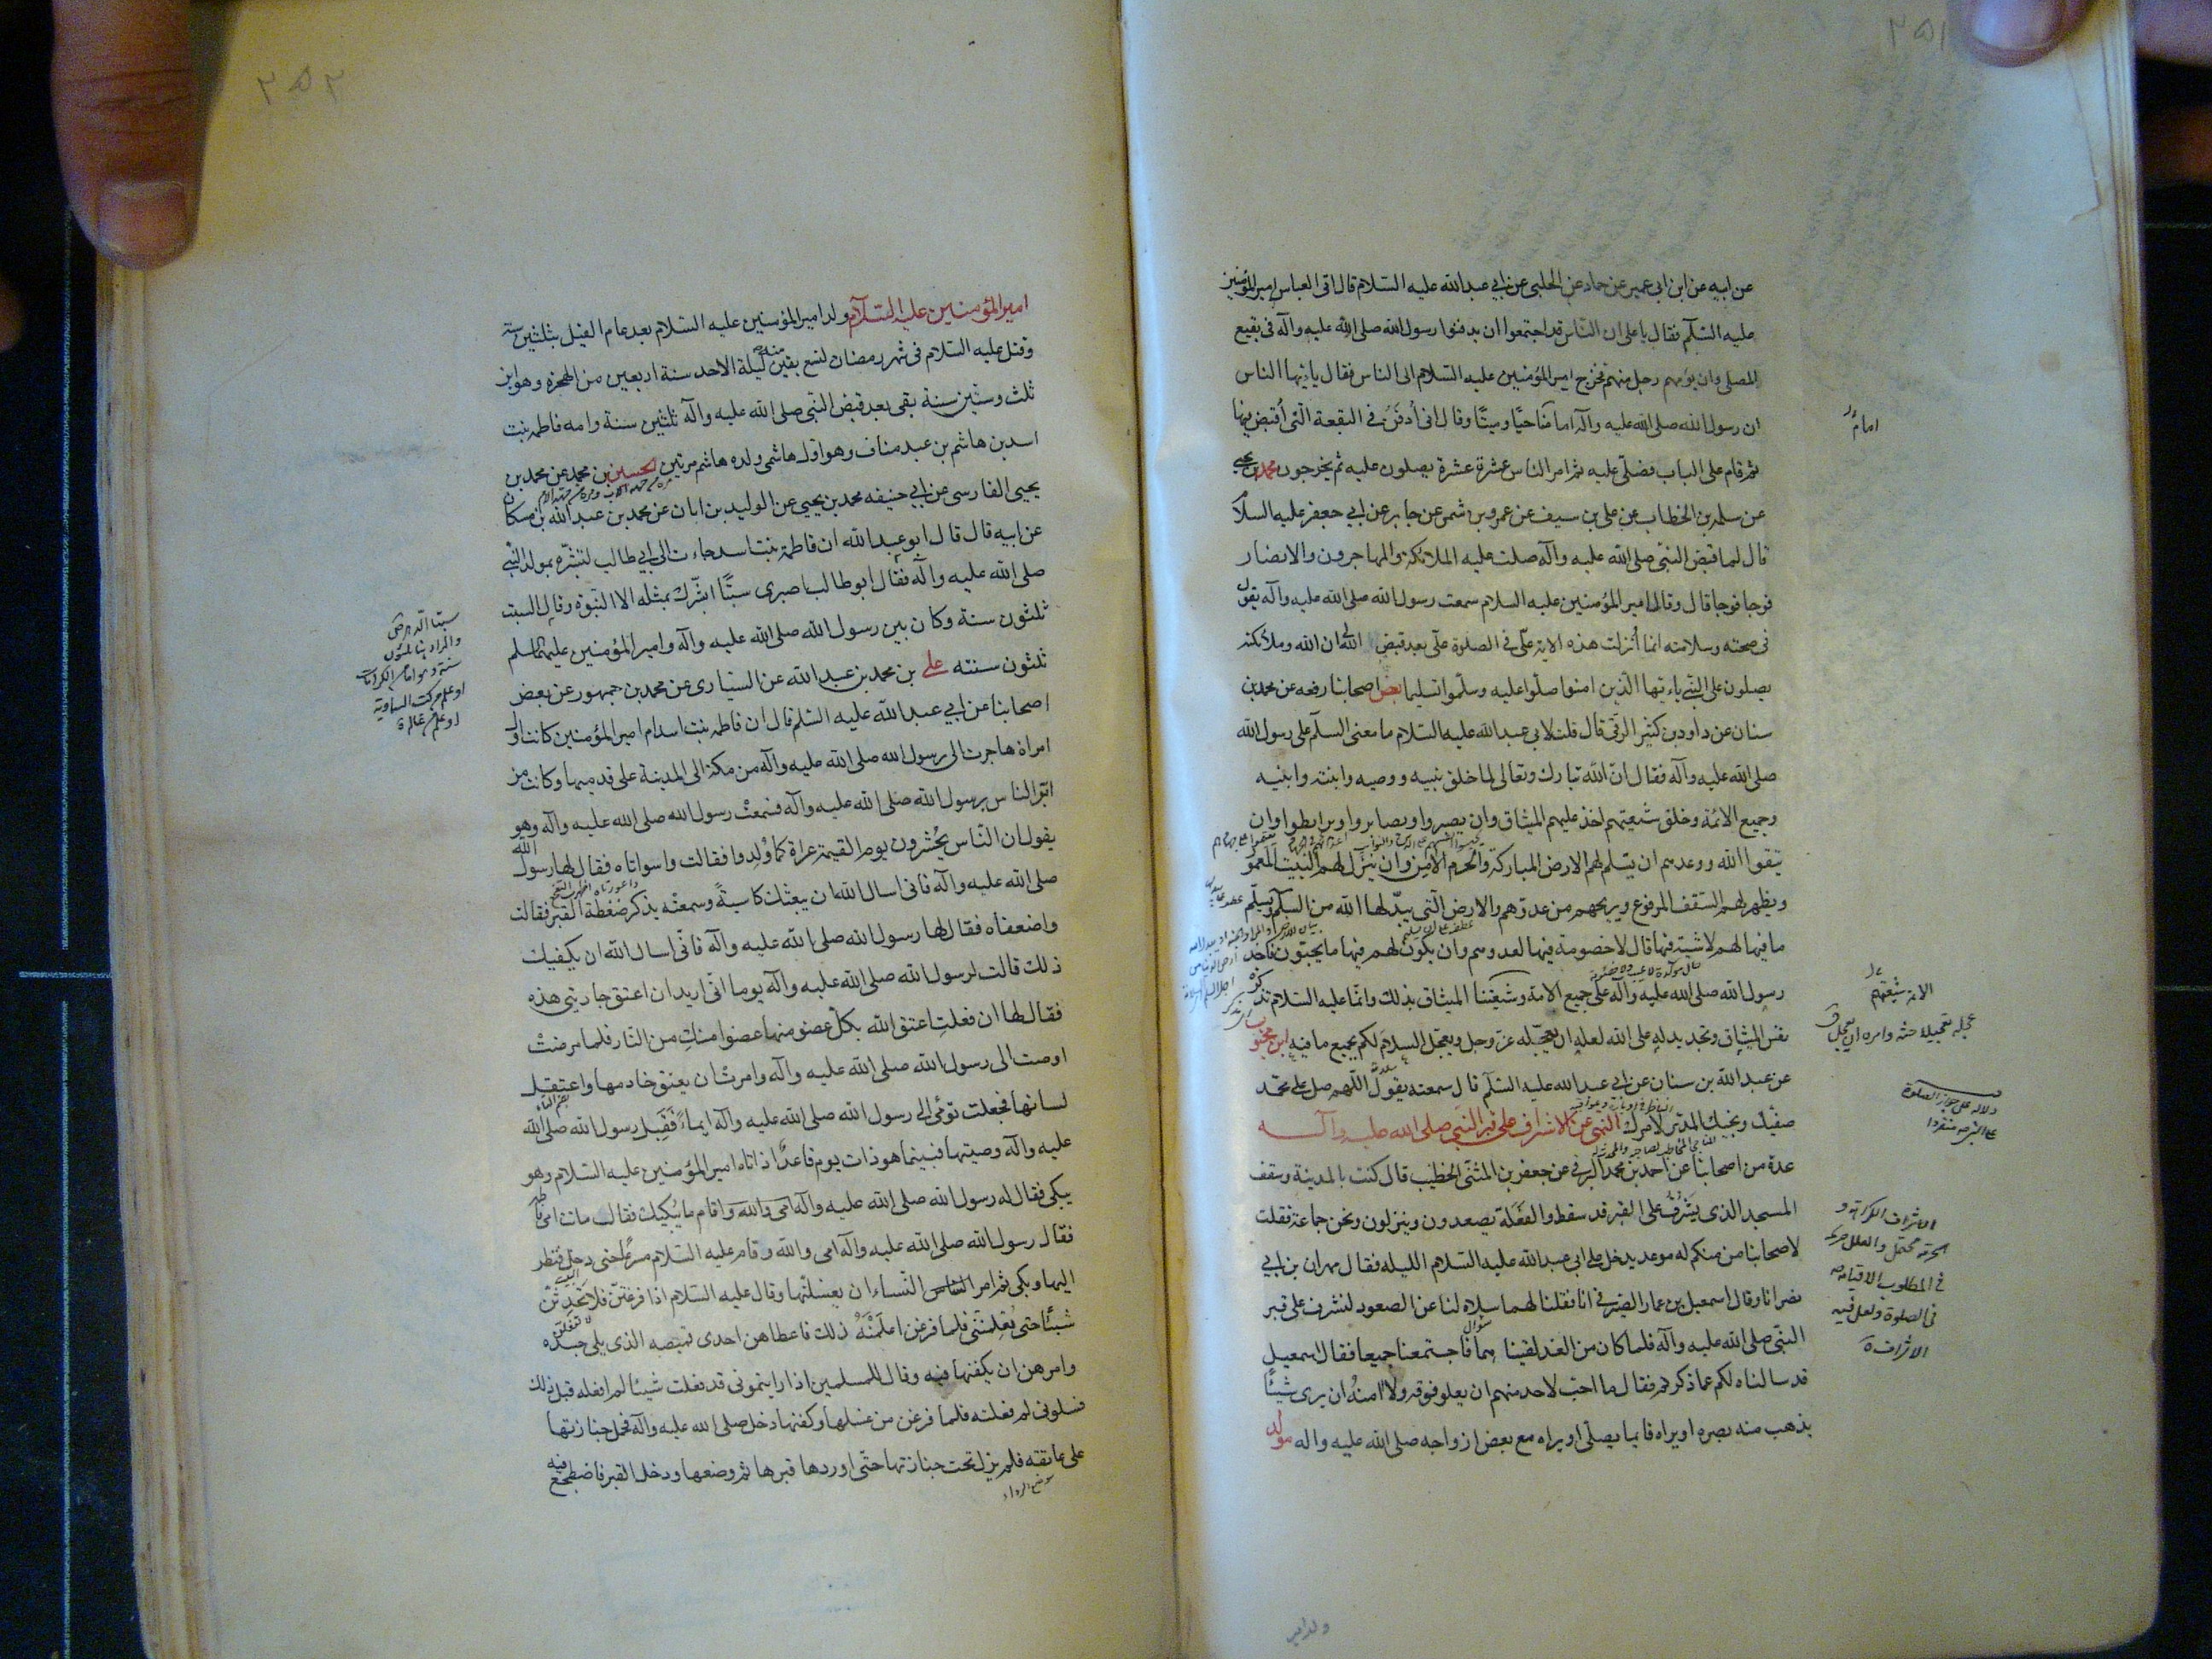 ٣٥١
عن ابيه عن ابن ابى عمير عن حماد عن الحلبى عن ابي عبد الله عليه السلام قال اتى العباس امير المؤمنين
عليه السلم فقال يا على ان الناس قد اجتمعوا ان يدفنوا رسول الله صلى الله عليه وآله فى بقيع
المصلى وان يؤمهم رجل منهم فخرج امير المؤمنين عليه السلام الى الناس فقال يا ايها الناس
ان رسول الله صلى الله عليه وآله امامنا حيّا وميتّا وقال انى اُدفَنُ فى البقعة التى اُقبض فيها
ثم قام على الباب فصلّى عليه ثم امر الناس عشرة عشرة يصلون عليه ثم يخرجون محمد بن يحيى
عن سلمة بن الخطاب عن على بن سيف عن عمرو بن شمر عن جابر عن ابي جعفر عليه السلام
قال لما قبض النبىّ صلى الله عليه وآله صلت عليه الملائكة والمهاجرون والانصار
فوجا فوجا قال وقال امير المؤمنين عليه السلام سمعت رسول الله صلى الله عليه وآله يقول
فى صحته وسلامته انما اُنزلت هذه الاية علّى فى الصلوة علّى بعد قبض الله لى ان الله وملائكته
يصلون على النبّى يا ايها الّذين امنوا صلّوا عليه وسلّموا تسليما بعض اصحابنا رفعه عن محمد بن
سنان عن داود بن كثير الرقّى قال قلت لابى عبد الله عليه السلام ما معنى السلم على رسول الله
صلى الله عليه وآله فقال انّ الله تبارك وتعالى لما خلق نبيه ووصيه وابنته وابنيه
وجميع الائمة وخلق شيعتهم اخذ عليهم الميثاق وان يصبروا ويصابروا ويرابطوا وان
يتقوا الله ووعدهم ان يسّلم لهم الارض المباركة والحرم الآمن وان ينزّل لهم البيت المعمور
ويظهر لهم السقف المرفوع ويريحهم من عدوّهم والارض التى يبدّلها الله من السلم ويسلّم
ما فيها لهم لاشية فيها قال لا خصومة فيها لعدوهم وان يكون لهم فيها ما يحبّون فاخذ
رسول الله صلى الله عليه وآله على جميع الامة وشيعتنا الميثاق بذلك وانمّا عليه السلام تذكرة
نفس الميثاق وتجديد له على الله لعله ان يعجّله عزّ وجل ويعجّل السلام لكم بجميع ما فيه ابن محبوب
عن عبد الله بن سنان عن ابي عبد الله عليه السلم قال سمعته يقول اللّهم صل على محمّد
صفيّك ونجيك المدبّر لامرك النهى عن الاشراف على قبر النبّى صلى الله عليه وآله
عدة من اصحابنا عن احمد بن محمد البرقى عن جعفر بن المثنّى الخطيب قال كنت بالمدينة وسقف
المسجد الذى يَشْرُفُ على القبر قد سقط والفَعَلَة يصعدون وينزلون ونحن جماعة فقلت
لاصحابنا من منكم له موعد يدخل على ابى عبد الله عليه السلام الليله فقال مهران بن ابي
نصر انا وقال اسمعيل بن عمار الصيرفى انا فقلنا لهما سلاه لنا عن الصعود لنشرف على قبر
النبّى صلى الله عليه وآله فلما كان من الغد لقيناهما فاجتمعنا جميعا فقال اسمعيل
قد سالناه لكم عما ذكرتم فقال ما احبّ لاحد منهم ان يعلو فوقه ولا اٰمنهُ ان يرى شيئًا
يذهب منه بصره او يراه قايما يصلّى او يراه مع بعض ازواجه صلى الله عليه واله مولد
ولد امير
الائمة شيعتهم
دلالة على جواز الصلوة
٣٥٢
امير المؤمنين عليه السّلام ولد امير المؤمنين عليه السلام بعد عام الفيل بثلثين سنة
وقتل عليه السلام فى شهر رمضان لتسع بقين منه ليلة الاحد سنة اربعين من الهجرة وهو ابن
ثلث وستّين سنة بقى بعد قبض النبّى صلى الله عليه وآله ثلثين سنة وامه فاطمة بنت
اسد بن هاشم بن عبد مناف وهو اول هاشمى ولده هاشم مرتين الحسين بن محمد عن محمد بن
يحيى الفارسى عن ابي حنيفه محمد بن يحيى عن الوليد بن ابان عن محمد بن عبد الله بن مسكان
عن ابيه قال قال ابو عبد الله ان فاطمة بنت اسد جاءت الى ابي طالب لتبشّره بمولد النبّى
صلى الله عليه وآله فقال ابو طالب اصبرى سبتًا ابشّرك بمثله الا النّبوّة وقال السبت
ثلثون سنة وكان بين رسول الله صلى الله عليه وآله وامير المؤمنين عليهما السلم
ثلثون سنته على بن محمد بن عبد الله عن السيّارى عن محمد بن جمهور عن بعض
اصحابنا عن ابي عبد الله عليه السلم قال ان فاطمه بنت اسد ام امير المؤمنين كانت اول
امراة هاجرت الى رسول الله صلى الله عليه وآله من مكة الى المدينة على قدميها وكانت من
ابّر الناس برسول الله صلى الله عليه وآله فسمعتْ رسول الله صلى الله عليه وآله وهو
يقول ان النّاس يُحشرون يوم القيمة عراة كما وُلِدوا فقالت واسواتاه فقال لها رسول الله
صلى الله عليه وآله فانى اسال الله ان يبعثك كاسيةً وسمعتْه يذكر ضغطة القبر فقالت
واضعفاه فقال لها رسول الله صلى الله عليه وآله فانّى اسال الله ان يكفيك
ذلك قالت لرسول الله صلى الله عليه وآله يوما انّى اريد ان اعتق جاريتى هذه
فقال لها ان فعلتِ اعتق الله بكل عضو منها عضوا منكِ من النّار فلما مرضتْ
اوصت الى رسول الله صلى الله عليه وآله وامرتْ ان يعتق خادمها واعتقل
لسانها فجعلت تومّى الى رسول الله صلى الله عليه وآله ايماءً فَقَبِل رسول الله صلى الله
عليه وآله وصيتها فبينما هو ذات يوم قاعدًا اذ اتاه امير المؤمنين عليه السلام وهو
يبكى فقال له رسول الله صلى الله عليه وآله ما يُبكيك فقال ماتت امى فاطمة
فقال رسول الله صلى الله عليه وآله امى والله وقام عليه السلام مسرعًا حتى دخل فنظر
اليها وبكى ثم امر النّساء ان يغسلنها وقال عليه السلام اذا فرغتنّ فلا تُحْدِثْنَ
شيئًا حتى تُعْلِمننّى فلما فرغن اعلَمْنَهُ ذلك فاعطاهن احدى قميصه الذى يلى جسده
وامرهن ان يكفنها فيه وقال للمسلمين اذا رايتمونى قد فعلت شيئا لم افعله قبل ذلك
فسلونى لم فعلته فلما فرغن من غسلها وكفنها دخل صلى الله عليه وآله فحمل جنازتها
على عاتقه فلم يزل تحت جنازتها حتّى اوردها قبرها ثم وضعها ودخل القبر فاضطجع فيه